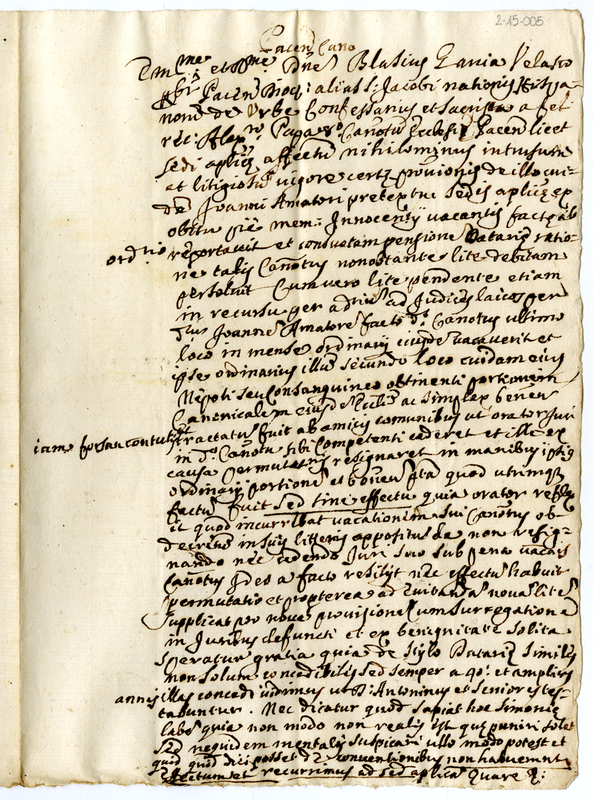 2-15-005
Pacen Cano
Em^me et R^me Dne Blasius Zania Velasco
pbr Pacen alias S. Jacobi nationis Hispa-
norũ de Urbe Confessarius et Sacrista a fel.
rec: Alex^ro Papa Canotũ Ecclesiȩ Pacen licet
sedi aplicȩ affectũ nihilominus intrusum
et litigiosũ vigore certȩ provionis de illo cui-
dã Joanni Amatori pretextu sedis aplicȩ
obitu piȩ mem: Innocentij vacantis factȩ ab
ordrio reportavit et consuetam pensionẽ Datariȩ ratio-
ne talis Canotus nonobstante lite debitam
persolvit Cum vero lite pendente etiam
in recursu per ad Judices laicos per
Joannẽ Amatorẽ facto d: Canotus ultimo
loco in mense ordinarij eiusdẽ vacaverit et
ipse ordinarius illũ secundo loco cuidam eius
Nepoti seu Consanguineo obtinenti portionem
Canonicalem eiusd Ecclie ac simplex benen
iam forsan contulit tractatũ fuit ab amicis comunibus ut orator Juri
in d: Canotu sibi Competenti cederet et ille ex
causa permutatnis resignaret in manibus ipsius
ordinarij portione et benen Ita quod utrimq
factũ fuit sed sine effectu quia orator
it quod incurrebat vacationem sui Canotus ob
decretũ in suis litteris appositũ de non resig-
nando nec cedendo Juri suo sub pena vacnis
Canotus Ideo a facto resilijt nec effectũ habuit
permutatio et propterea ad evitandã nova lite
supplicat pro nova provisione Cum surregatione
in Juribus defuncti et ex benignitate solita
speratur gratia quia de stylo Datariȩ similes
non solum concedibiles sed semper a 40: et amplius
annis illas concedi vidimus ut D: Antoninus et seniores tes-
tabuntur. Nec dicatur quod sapiat hoc simoniȩ
labẽ quia non modo non realis est quȩ puniri solet
sed nequidem mentalis suspicari ullo modo potest et
quid quid dici posset de conventionibus non habuerunt
effectum et recurrimus ad sed aplica Quare